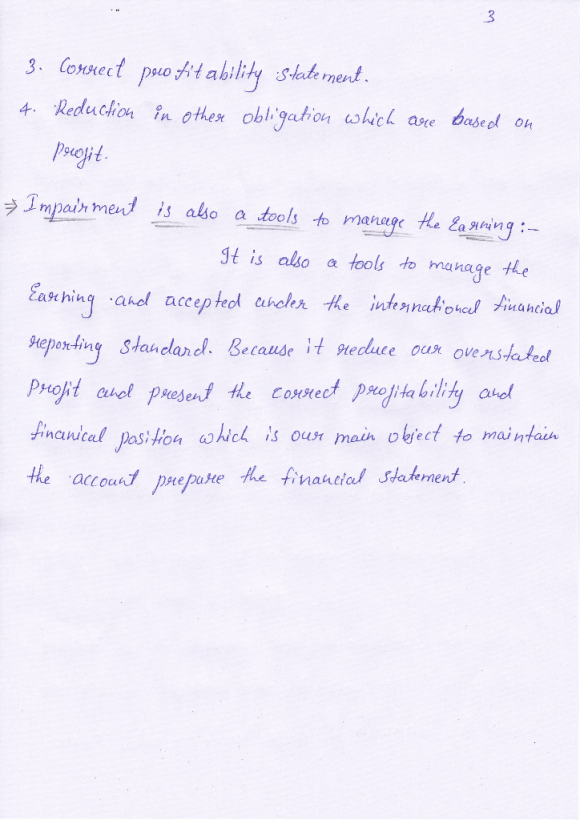 3
3. Correct profitability statement.
4. Reduction in other obligation which are based on
profit.
⇒ Impairment is also a tools to manage the Earning :-
It is also a tools to manage the
Earning and accepted under the international financial
reporting standard. Because it reduce our overstated
Profit and present the correct profitability and
finanical position which is our main object to maintain
the account prepare the financial statement.